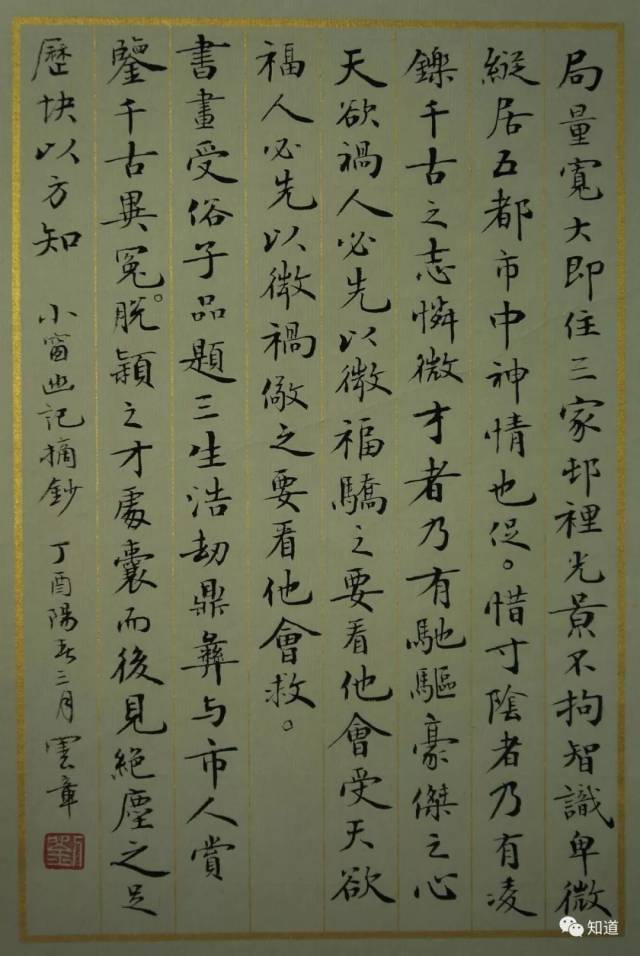 局量寬大即住三家邨裡光景不拘智識卑微
縱居五都市中神情也促。惜寸陰者乃有凌
鑠千古之志憐微才者乃有馳驅豪傑之心
天欲禍人必先以微福驕之要看他會受天欲
福人必先以微禍儆之要看他會救。
書畫受俗子品題三生浩劫鼎彝与市人賞
鑒千古異冤。脫穎之才處囊而後見絕塵之足
歷块以方知 小窗幽記摘鈔 丁酉陽春三月 雲章
劉
知道